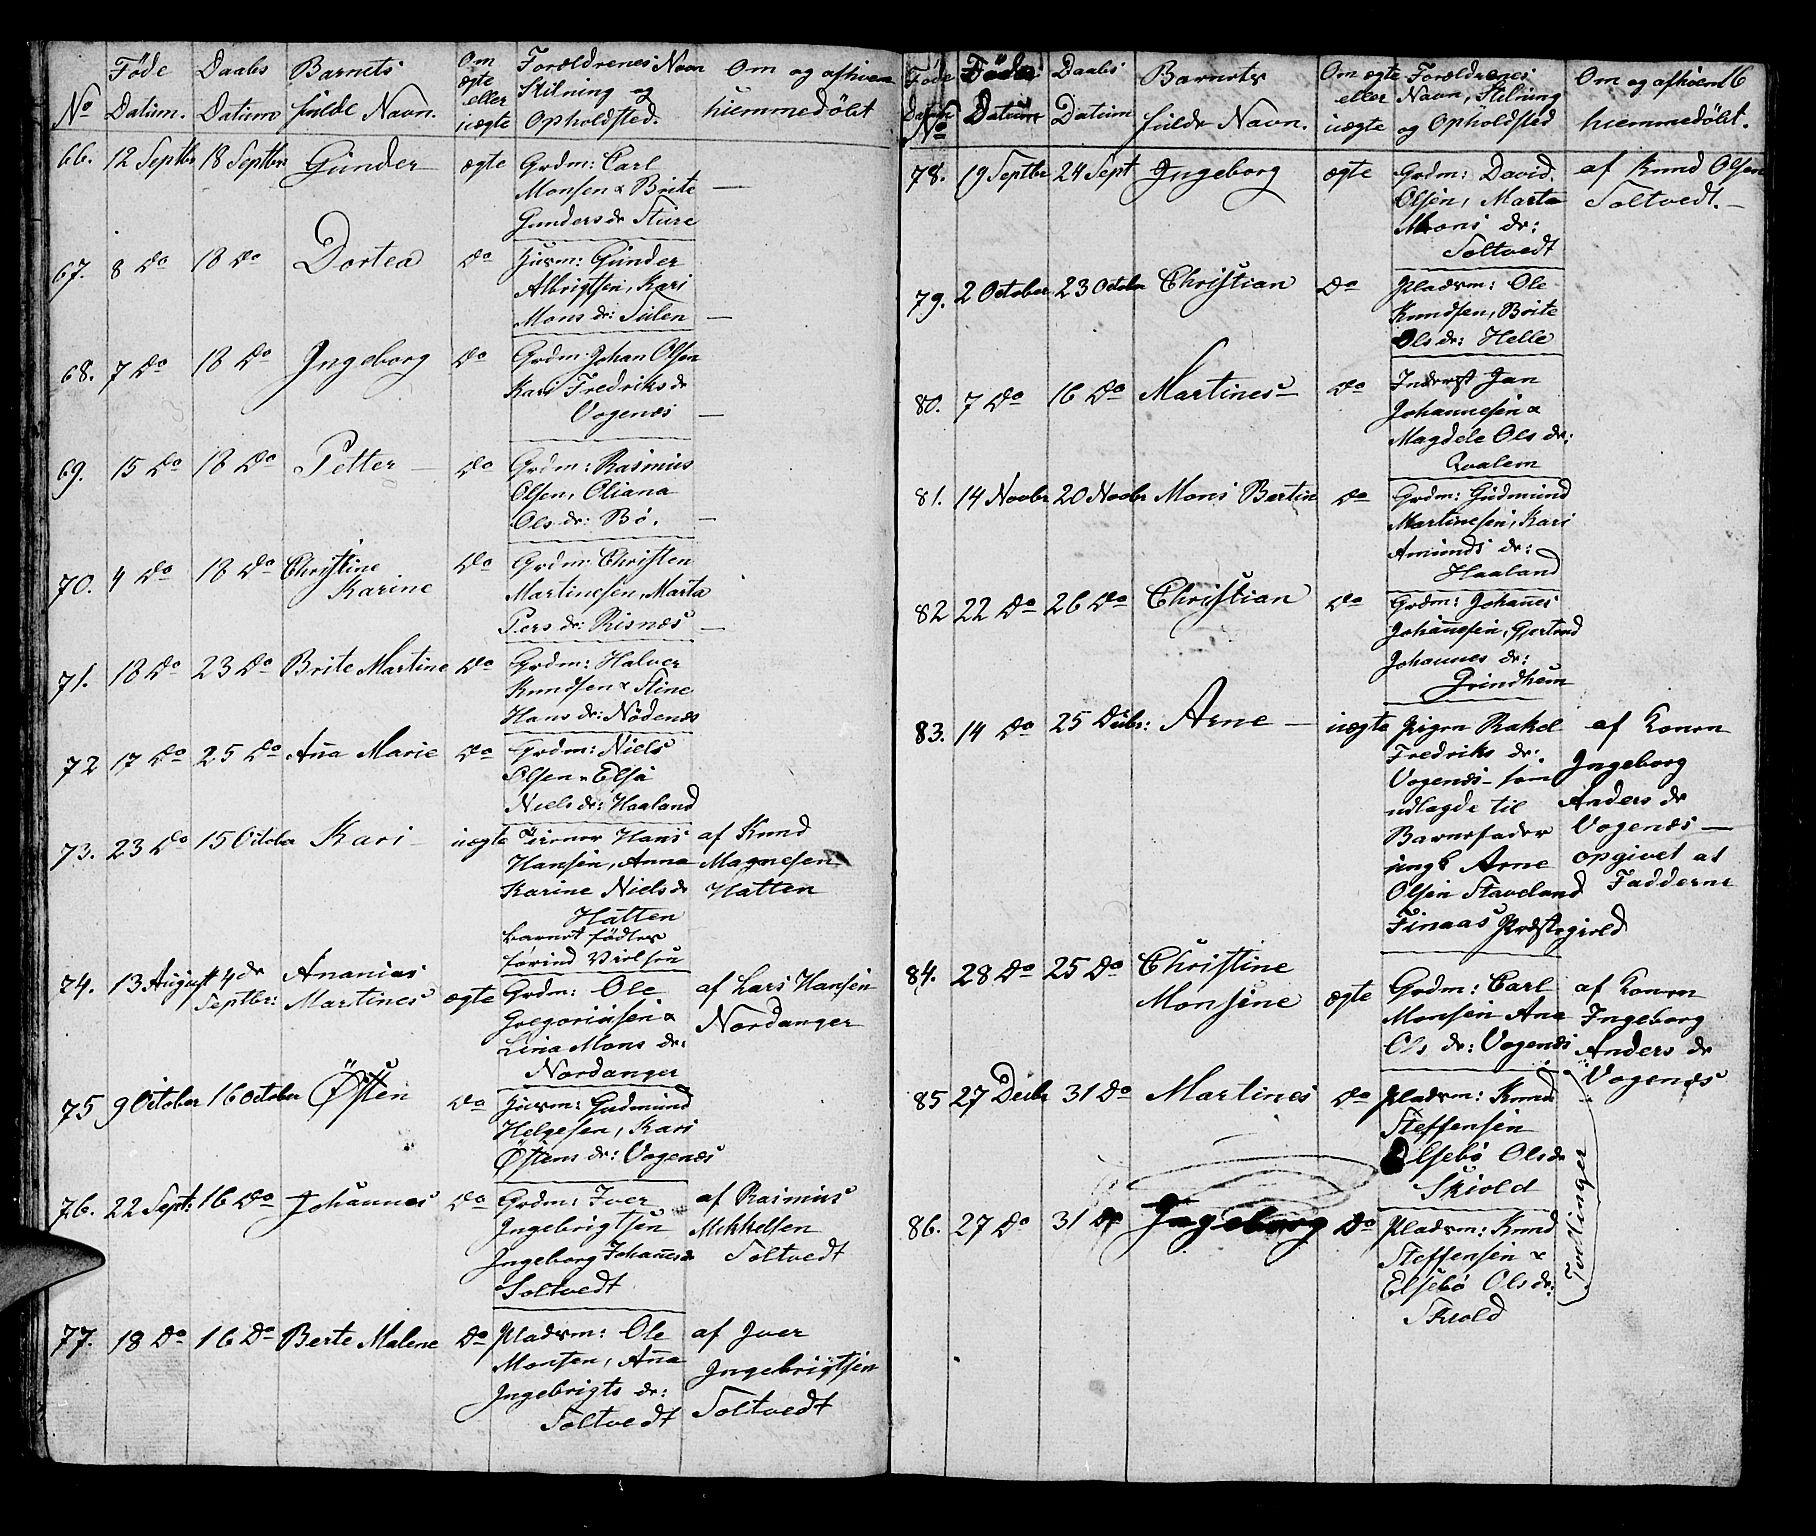 No
Føde Datum.
Daabs Datum
Barnets fulde Navn.
Om ægte eller uægte
Forældrenes Navn
Stilning og
Opholdsted.
Om og af hvem
hiemmedøbt
66. 12 Septbr 18 Septbr Gunder ægte Grdm: Carl
Monsen & Brite —
Gunders dr Sture
67. 8 do 18 do Dortea do Huusm: Gunder
Albrigtsen, Kari
Mons dr: Tulen —
68. 7 do 18 do Ingeborg do Grdm: Johan Olsen
Kari Fredriks dr
Vogenæs —
69. 15 do 18 do Petter — do Grdm: Rasmus
Olsen, Oliana
Ols dr: Bö. —
70. 4 do 18 do Christine do Grdm: Christen
Karine Martinesen, Marta
Pers dr: Risnæs —
71. 18 do 23 do Brite Martine do Grdm: Halver
Knudsen & Stine
Hans dr: Nödenæs
72 17 do 25 do Ana Marie do Grdm: Niels
Olsen & Elsa
Niels dr: Haaland
73. 23 do 15 October Kari — uægte Hans af Knud
Hansen, Anna Magnesen
Karine Niels dr Hatten
Hatten
barnet födt
74. 13 August 4de Ananias
Septbr: Martines ægte Grdm: Ole af Lars Hansen
Gregoriusen & Nordanger
Lina Mons dr:
Nordanger
75 9 October 16 October Østen do Huusm: Gudmund
Helgesen, Kari
Østens dr: Vogenæs
76. 22 Sept: 16 do Johannes do Grdm: Iver af Rasmus
Ingebrigtsen Mikkelsen
Ingeborg Johanes dr Toltvedt
Soltvedt
77. 18 do 16 do Berte Malene do Pladsm: Ole af Iver
Monsen, Ana Ingebrigtsen
Ingebrigts dr: Toltvedt
Toltvedt
Føde
No
Føde Datum
Daabs Datum
Barnets fulde Navn.
Om ægte eller uægte
Forældrenes
Navn, Stilning
og Opholdsted
Om og af hvem 16
hiemmedøbt.
78. 19 Septbr 24 Sept Ingeborg ægte Grdm: David af Knud Olsen
Olsen, Marta Toltvedt. —
Mons dr:
Toltvedt
79. 2 October 23 Octobr Christian do Pladsm: Ole
Knudsen, Brite
Ols dr: Helle
80. 7 do 16 do Martines — do Inderst Jan
Johannesen &
Magdele Ols dr:
Qvalem
81. 14 Novbr 20 Novbr Mons Bertin do Grdm: Gudmund
Martinesen, Kari
Amunds dr:
Haaland
82 22 do 26 do Christian do Grdm: Johanes
Johanesen, Gjertrud
Johannes dr:
Grindhem
83. 14 do 25 Decbr: Arne — uægte Pigen Rakel af Konen
Fredriks dr: Ingeborg
Vogenæs — som Anders dr
udlagde til Vogenæs —
Barnefader opgivet at
ungk Arne Fadderne
Olsen Staveland
Finaas Præstegield
84. 28 do 25 do Christine
Monsine ægte Grdm: Carl af Konen
Monsen Ana Ingeborg
Ols dr: Vogenæs Anders dr
Vogenæs
85 27 Decbr 31 do Martines do Pladsm: Knud
Steffensen
Elsebö Ols dr
Skiold
86. 27 do 31 do Ingeborg do Pladsm: Knud
Steffensen &
Elsebö Ols dr:
Skiold
Tvillinger